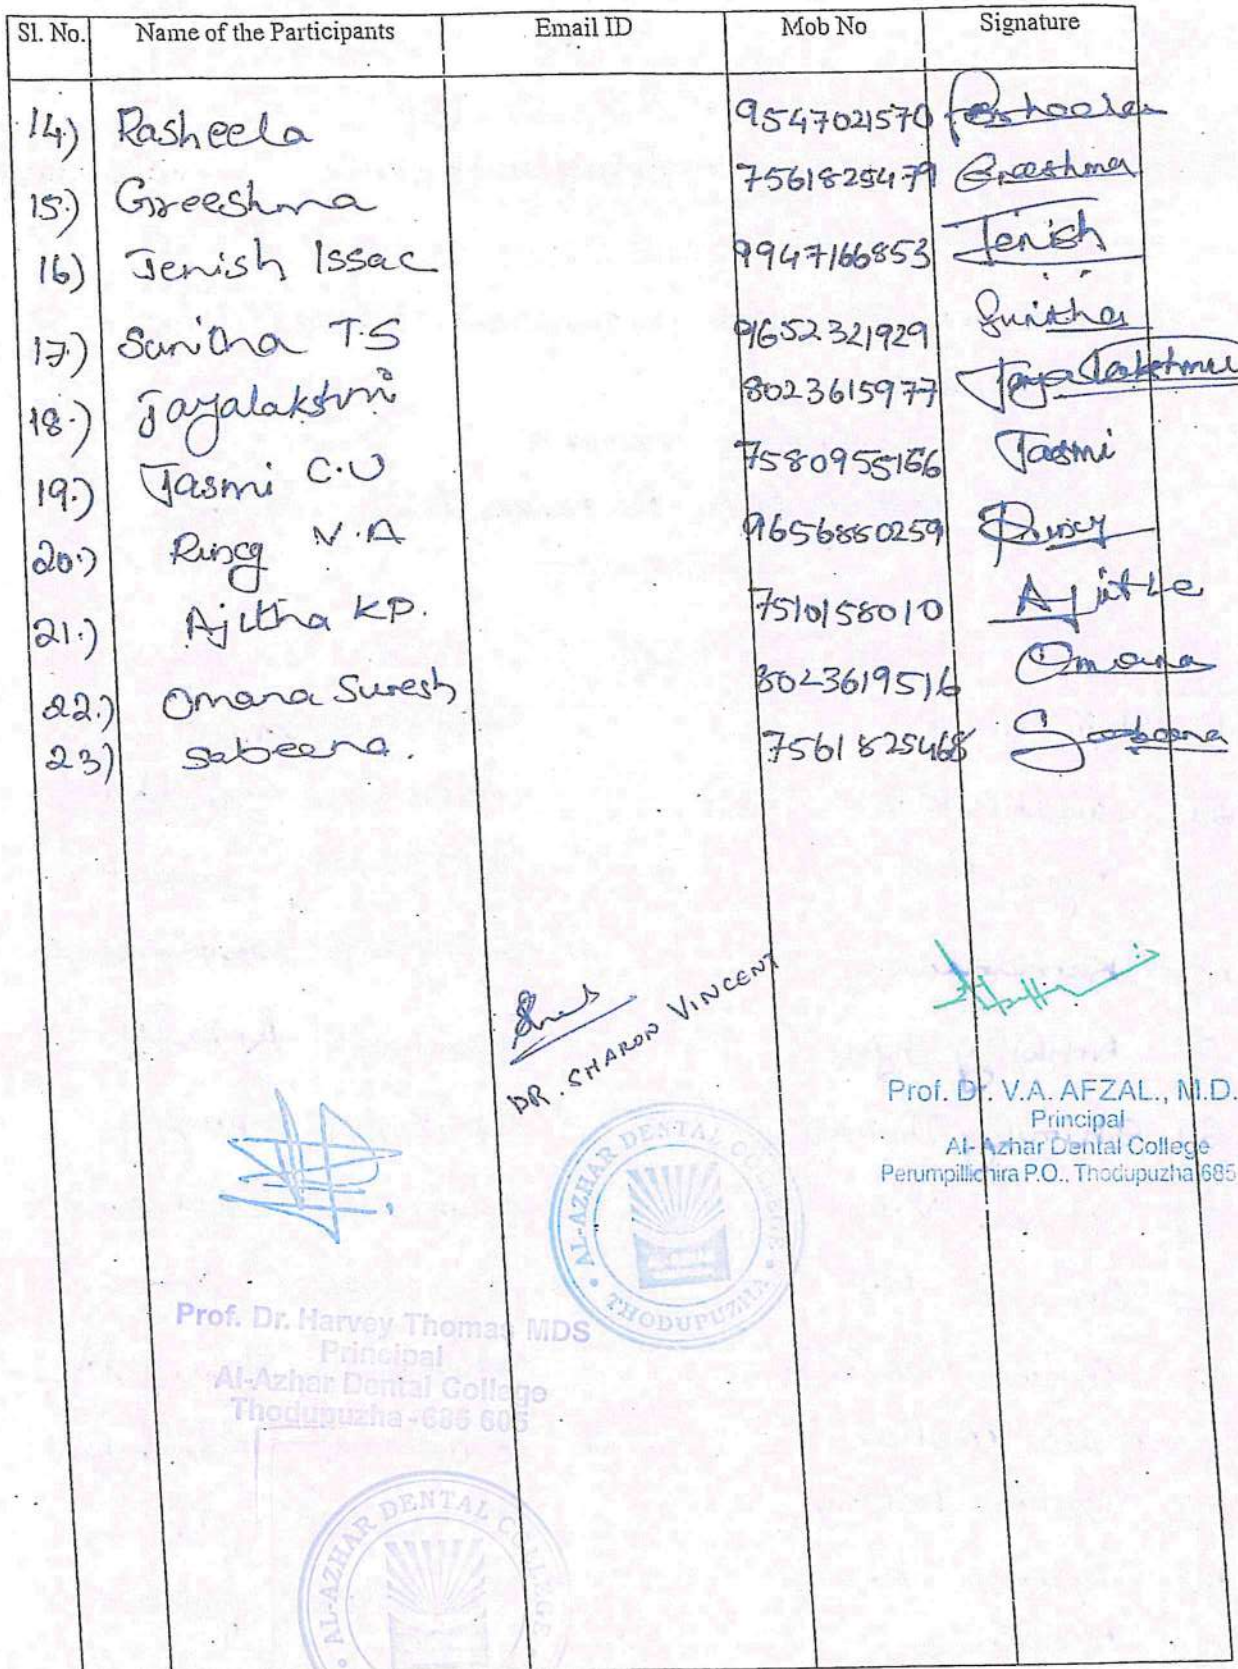 Sl. No. Name of the Participants Email ID Mob No Signature
14.) Rasheela 9547021570
15.) Greeshma 7561825479 Greeshma
16) Jenish Issac 9947166853 Jenish
17.) Sunitha T.S 9652321929 Sunitha
18.) Jayalakshmi 8023615977 Jayalakshmi
19.) Jasmi C.U 7580955166 Jasmi
20.) Rincy V.A 9656860259 Rincy
21.) Ajitha K.P. 7510158010 Ajitha
22.) Omana Suresh 8023619516 Omana
23) Sabeena. 7561825468 Sabeena
DR. SHARON VINCENT
Prof. Dr. V.A. AFZAL., M.D.
Principal
Al-Azhar Dental College
Perumpillichira P.O., Thodupuzha 685
AL-AZHAR DENTAL COLLEGE
THODUPUZHA
Prof. Dr. Harvey Thomas MDS
Principal
Al-Azhar Dental College
Thodupuzha - 685 605
AL-AZHAR DENTAL COLLEGE